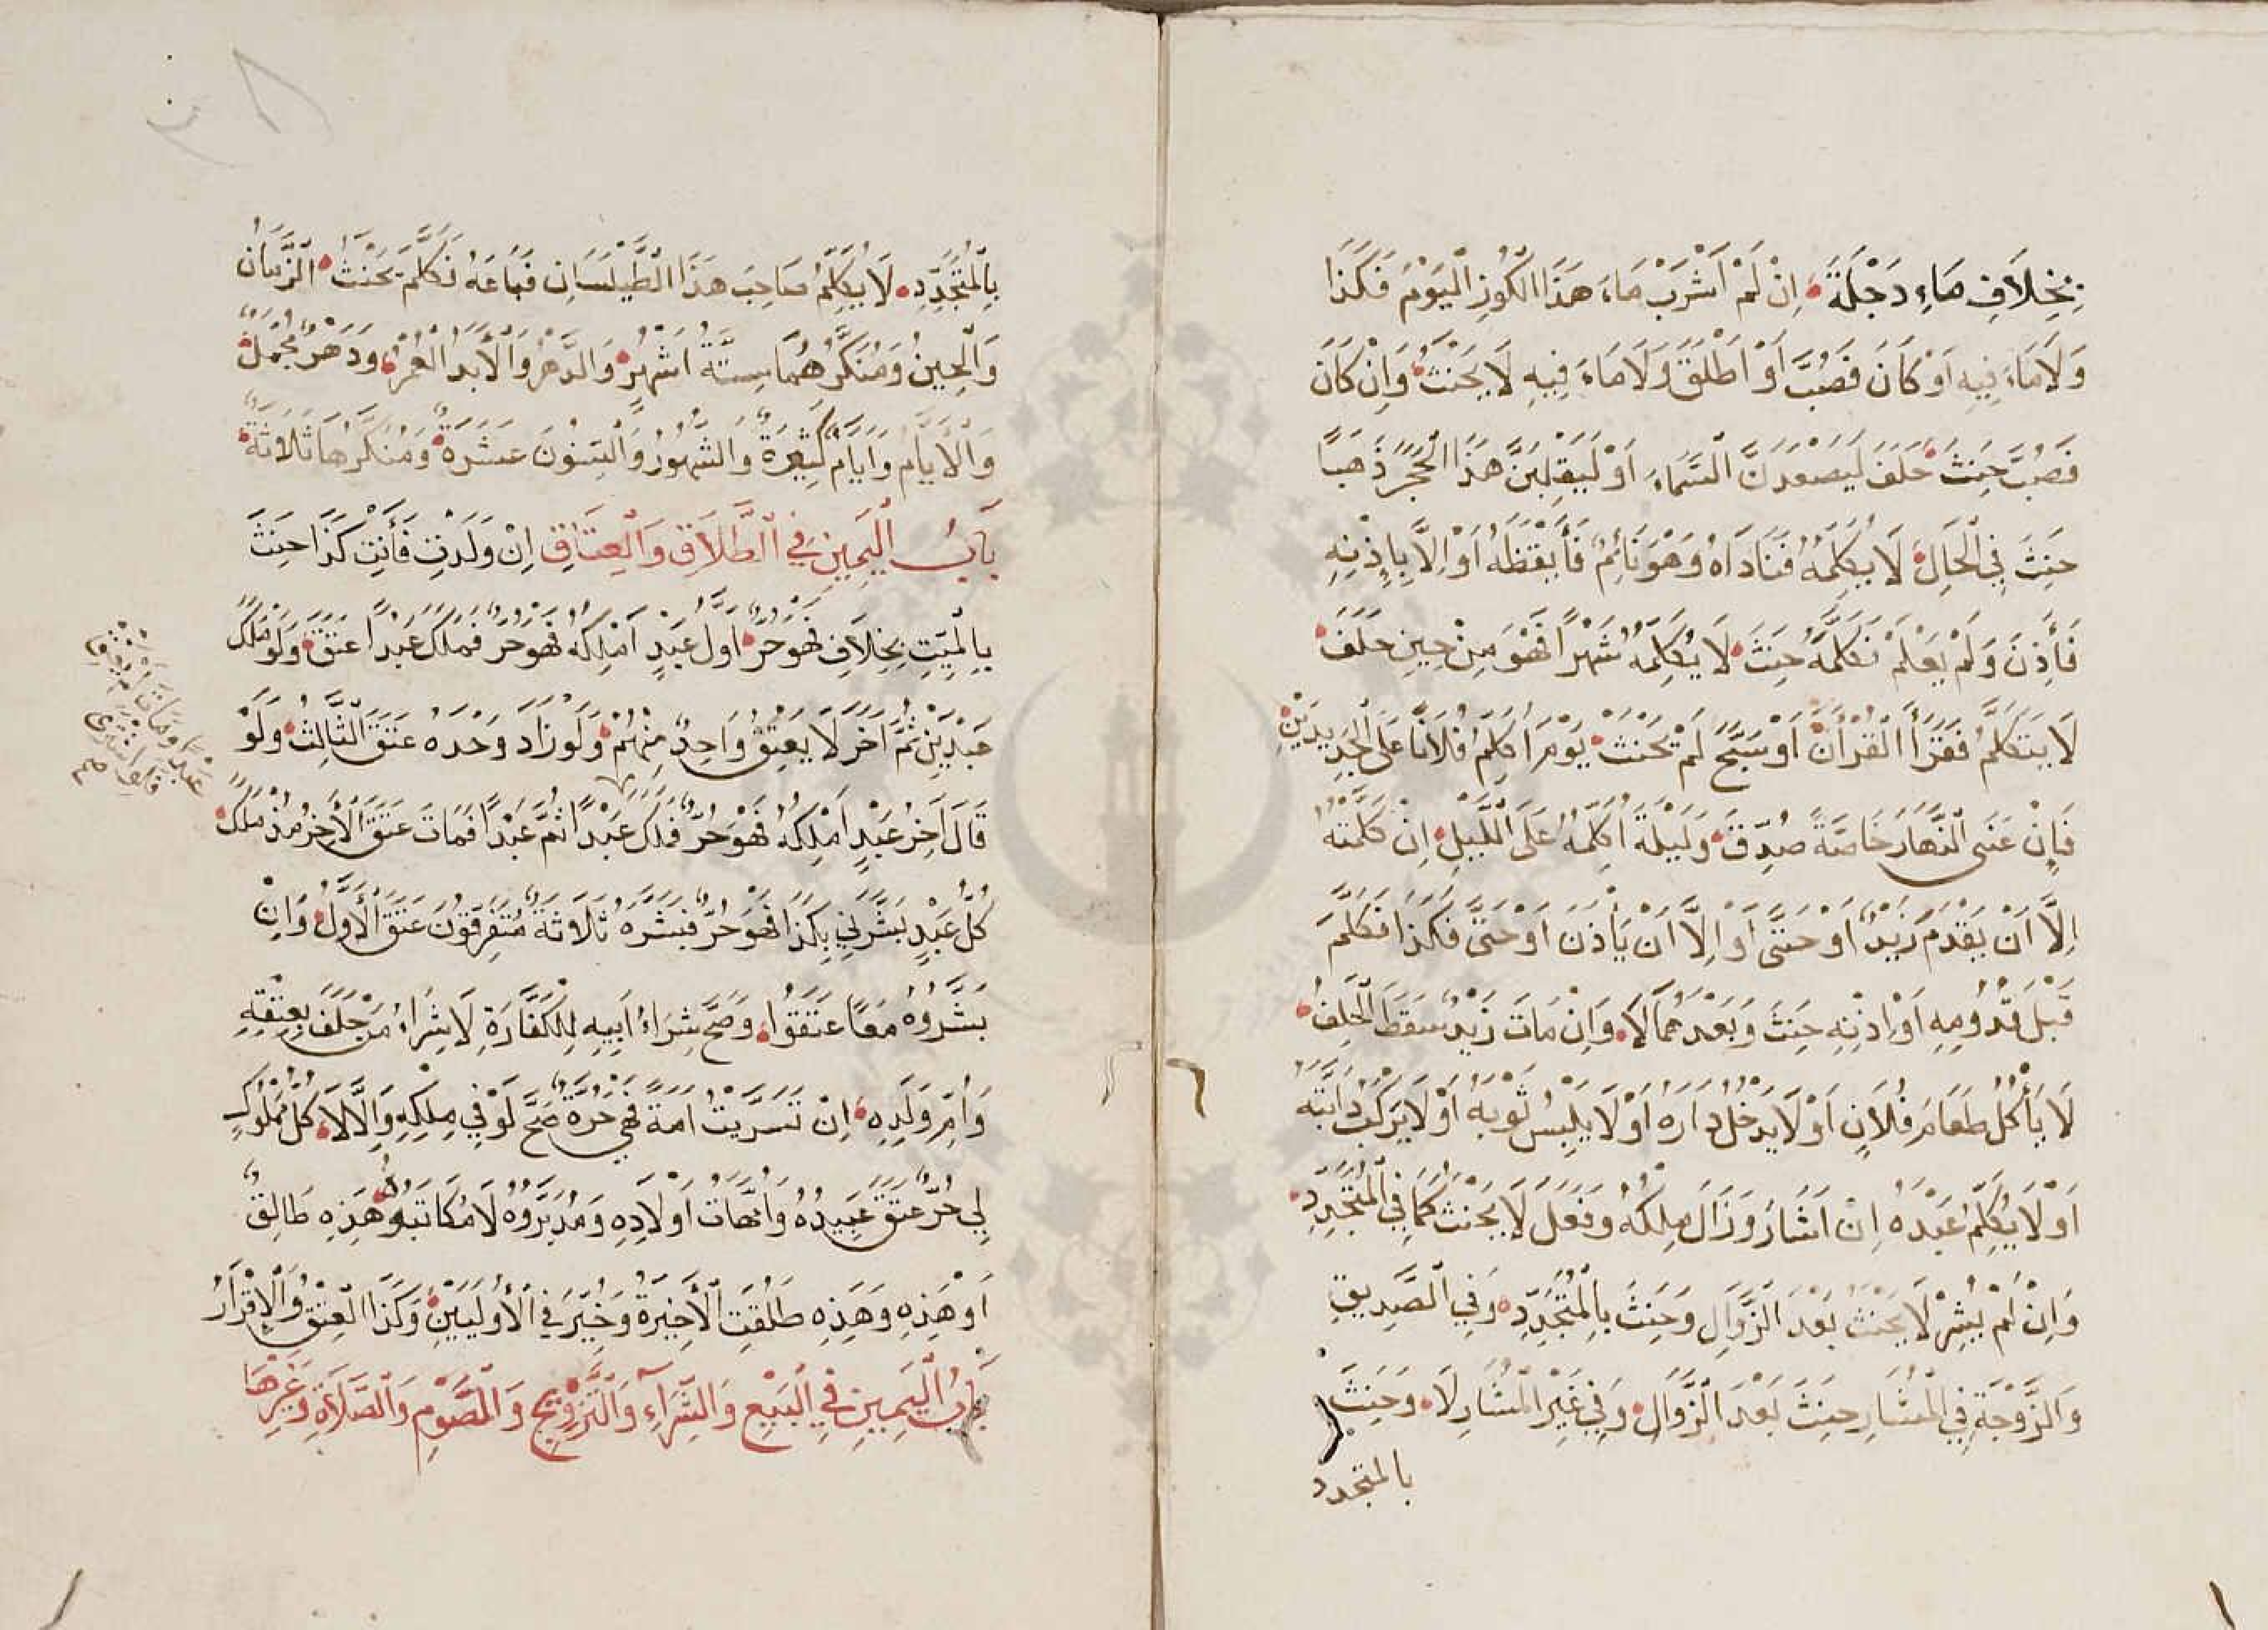 بِخِلَافِ مَاءِ دَجْلَةَ اِنْ لَمْ اَشْرَبْ مَاءَ هَذَا الْكُوزِ الْيَوْمَ فَكَذَا
وَلَا مَاءَ فِيهِ اَوْ كَانَ فَصُبَّ اَوْ اَطْلَقَ وَلَا مَاءَ فِيهِ لَا يَحْنَثُ وَاِنْ كَانَ
فَصُبَّ حَنِثَ حَلَفَ لَيَصْعَدَنَّ السَّمَاءَ اَوْ لَيَقْلِبَنَّ هَذَا الْحَجَرَ ذَهَبًا
حَنِثَ فِي الْحَالِ لَا يُكَلِّمُهُ فَنَادَاهُ وَهُوَ نَائِمٌ فَأَيْقَظَهُ اَوْ اِلَّا بِاِذْنِهِ
فَأَذِنَ وَلَمْ يَعْلَمْ فَكَلَّمَهُ حَنِثَ لَا يُكَلِّمُهُ شَهْرًا فَهُوَ مِنْ حِينِ حَلَفَ
لَا يَتَكَلَّمُ فَقَرَأَ الْقُرْاٰنَ اَوْ سَبَّحَ لَمْ يَحْنَثْ يَوْمَ اُكَلِّمُ فُلَانًا عَلَى الْجَدِيدَيْنِ
فَاِنْ عَنَى النَّهَارَ خَاصَّةً صُدِّقَ وَلَيْلَةَ اُكَلِّمُهُ عَلَى اللَّيْلِ اِنْ كَلَّمْتُهُ
اِلَّا اَنْ يَقْدَمَ زَيْدٌ اَوْ حَتَّى اَوْ اِلَّا اَنْ يَأْذَنَ اَوْ حَتَّى فَكَذَا فَكَلَّمَ
قَبْلَ قُدُومِهِ اَوْ اِذْنِهِ حَنِثَ وَبَعْدَهُمَا لَا وَاِنْ مَاتَ زَيْدٌ سَقَطَ الْحَلِفُ
لَا يَأْكُلُ طَعَامَ فُلَانٍ اَوْ لَا يَدْخُلُ دَارَهُ اَوْ لَا يَلْبِسُ ثَوْبَهُ اَوْ لَا يَرْكَبُ دَابَّتَهُ
اَوْ لَا يُكَلِّمُ عَبْدَهُ اِنْ اَشَارَ وَزَالَ مِلْكُهُ وَفَعَلَ لَا يَحْنَثُ كَمَا فِي الْمُتَجَدِّدِ
وَاِنْ لَمْ يُشِرْ لَا يَحْنَثُ بَعْدَ الزَّوَالِ وَحَنِثَ بِالْمُتَجَدِّدِ وَفِي الصَّدِيقِ
وَالزَّوْجَةِ فِي الْمُشَارِ حَنِثَ بَعْدَ الزَّوَالِ وَفِي غَيْرِ الْمُشَارِ لَا وَحَنِثَ
بالمتجدد
بِالْمُتَجَدِّدِ لَا يُكَلِّمُ صَاحِبَ هَذَا الطَّيْلَسَانِ فَبَاعَهُ فَكَلَّمَ يَحْنَثُ الزَّمَانُ
وَالْحِينُ وَمُنَكَّرُهُمَا سِتَّةُ اَشْهُرٍ وَالدَّهْرُ وَالْأَبَدُ الْعُمْرُ وَدَهْرٌ مُجْمَلٌ
وَالْأَيَّامُ وَاَيَّامٌ كَثِيرَةٌ وَالشُّهُورُ وَالسِّنُونَ عَشَرَةٌ وَمُنَكَّرُهَا ثَلَاثَةٌ
بَابُ الْيَمِينِ فِي الطَّلَاقِ وَالْعِتَاقِ اِنْ وَلَدْتِ فَأَنْتِ كَذَا حَنِثَ
بِالْمَيِّتِ بِخِلَافِ فَهُوَ حُرٌّ اَوَّلُ عَبْدٍ اَمْلِكُهُ فَهُوَ حُرٌّ فَمَلَكَ عَبْدًا عَتَقَ وَلَوْ مَلَكَ
عَبْدَيْنِ ثُمَّ اٰخَرَ لَا يَعْتِقُ وَاحِدٌ مِنْهُمْ وَلَوْ زَادَ وَحْدَهُ عَتَقَ الثَّالِثُ وَلَوْ
قَالَ اٰخِرُ عَبْدٍ اَمْلِكُهُ فَهُوَ حُرٌّ فَمَلَكَ عَبْدًا ثُمَّ عَبْدًا فَمَاتَ عَتَقَ الْأَخِرُ مُذْ مَلَكَ
عَبْدًا وَمَاتَ لَمْ يَعْتِقْ فَلَوِ اشْتَرَى
صح
كُلُّ عَبْدٍ بَشَّرَنِي بِكَذَا فَهُوَ حُرٌّ فَبَشَّرَهُ ثَلَاثَةٌ مُتَفَرِّقُونَ عَتَقَ الْأَوَّلُ وَاِنْ
بَشَّرُوهُ مَعًا عَتَقُوا وَصَحَّ شِرَاءُ اَبِيهِ لِلْكَفَّارَةِ لَا شِرَاءُ مَنْ حَلَفَ بِعِتْقِهِ
وَاُمِّ وَلَدِهِ اِنْ تَسَرَّيْتُ اَمَةً فَهِيَ حُرَّةٌ صَحَّ لَوْ فِي مِلْكِهِ وَاِلَّا لَا كُلُّ مَمْلُوكٍ
لِي حُرٌّ عَتَقَ عَبِيدُهُ وَاُمَّهَاتُ اَوْلَادِهِ وَمُدَبَّرُوهُ لَا مُكَاتَبُوهُ هَذِهِ طَالِقٌ
اَوْ هَذِهِ وَهَذِهِ طَلُقَتِ الْأَخِيرَةُ وَخُيِّرَ فِي الْأُولَيَيْنِ وَكَذَا الْعِتْقُ وَالْاِقْرَارُ
بَابُ الْيَمِينِ فِي الْبَيْعِ وَالشِّرَآءِ وَالتَّزْوِيجِ وَالصَّوْمِ وَالصَّلَاةِ وَغَيْرِهَا